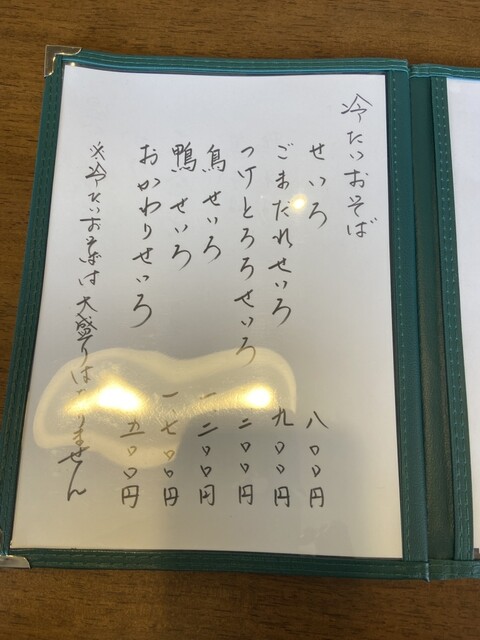 冷たいおそば
せいろ 八〇〇円
ごまだれせいろ 九〇〇円
つけとろろせいろ 二〇〇円
鳥せいろ 一、二〇〇円
鴨せいろ 一、七〇〇円
おかわりせいろ 五〇〇円
※冷たいおそばは大盛りは りません